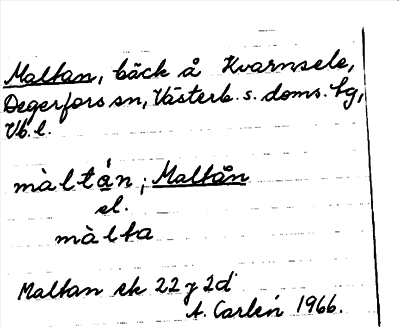 Maltan, bäck å Kvarnsele,
Degerfors sn, Västerb. s. doms. tg,
Vb. l.
màltán; Maltån
el.
màlta
Maltan ek 22 y 2d
A. Carlén 1966.